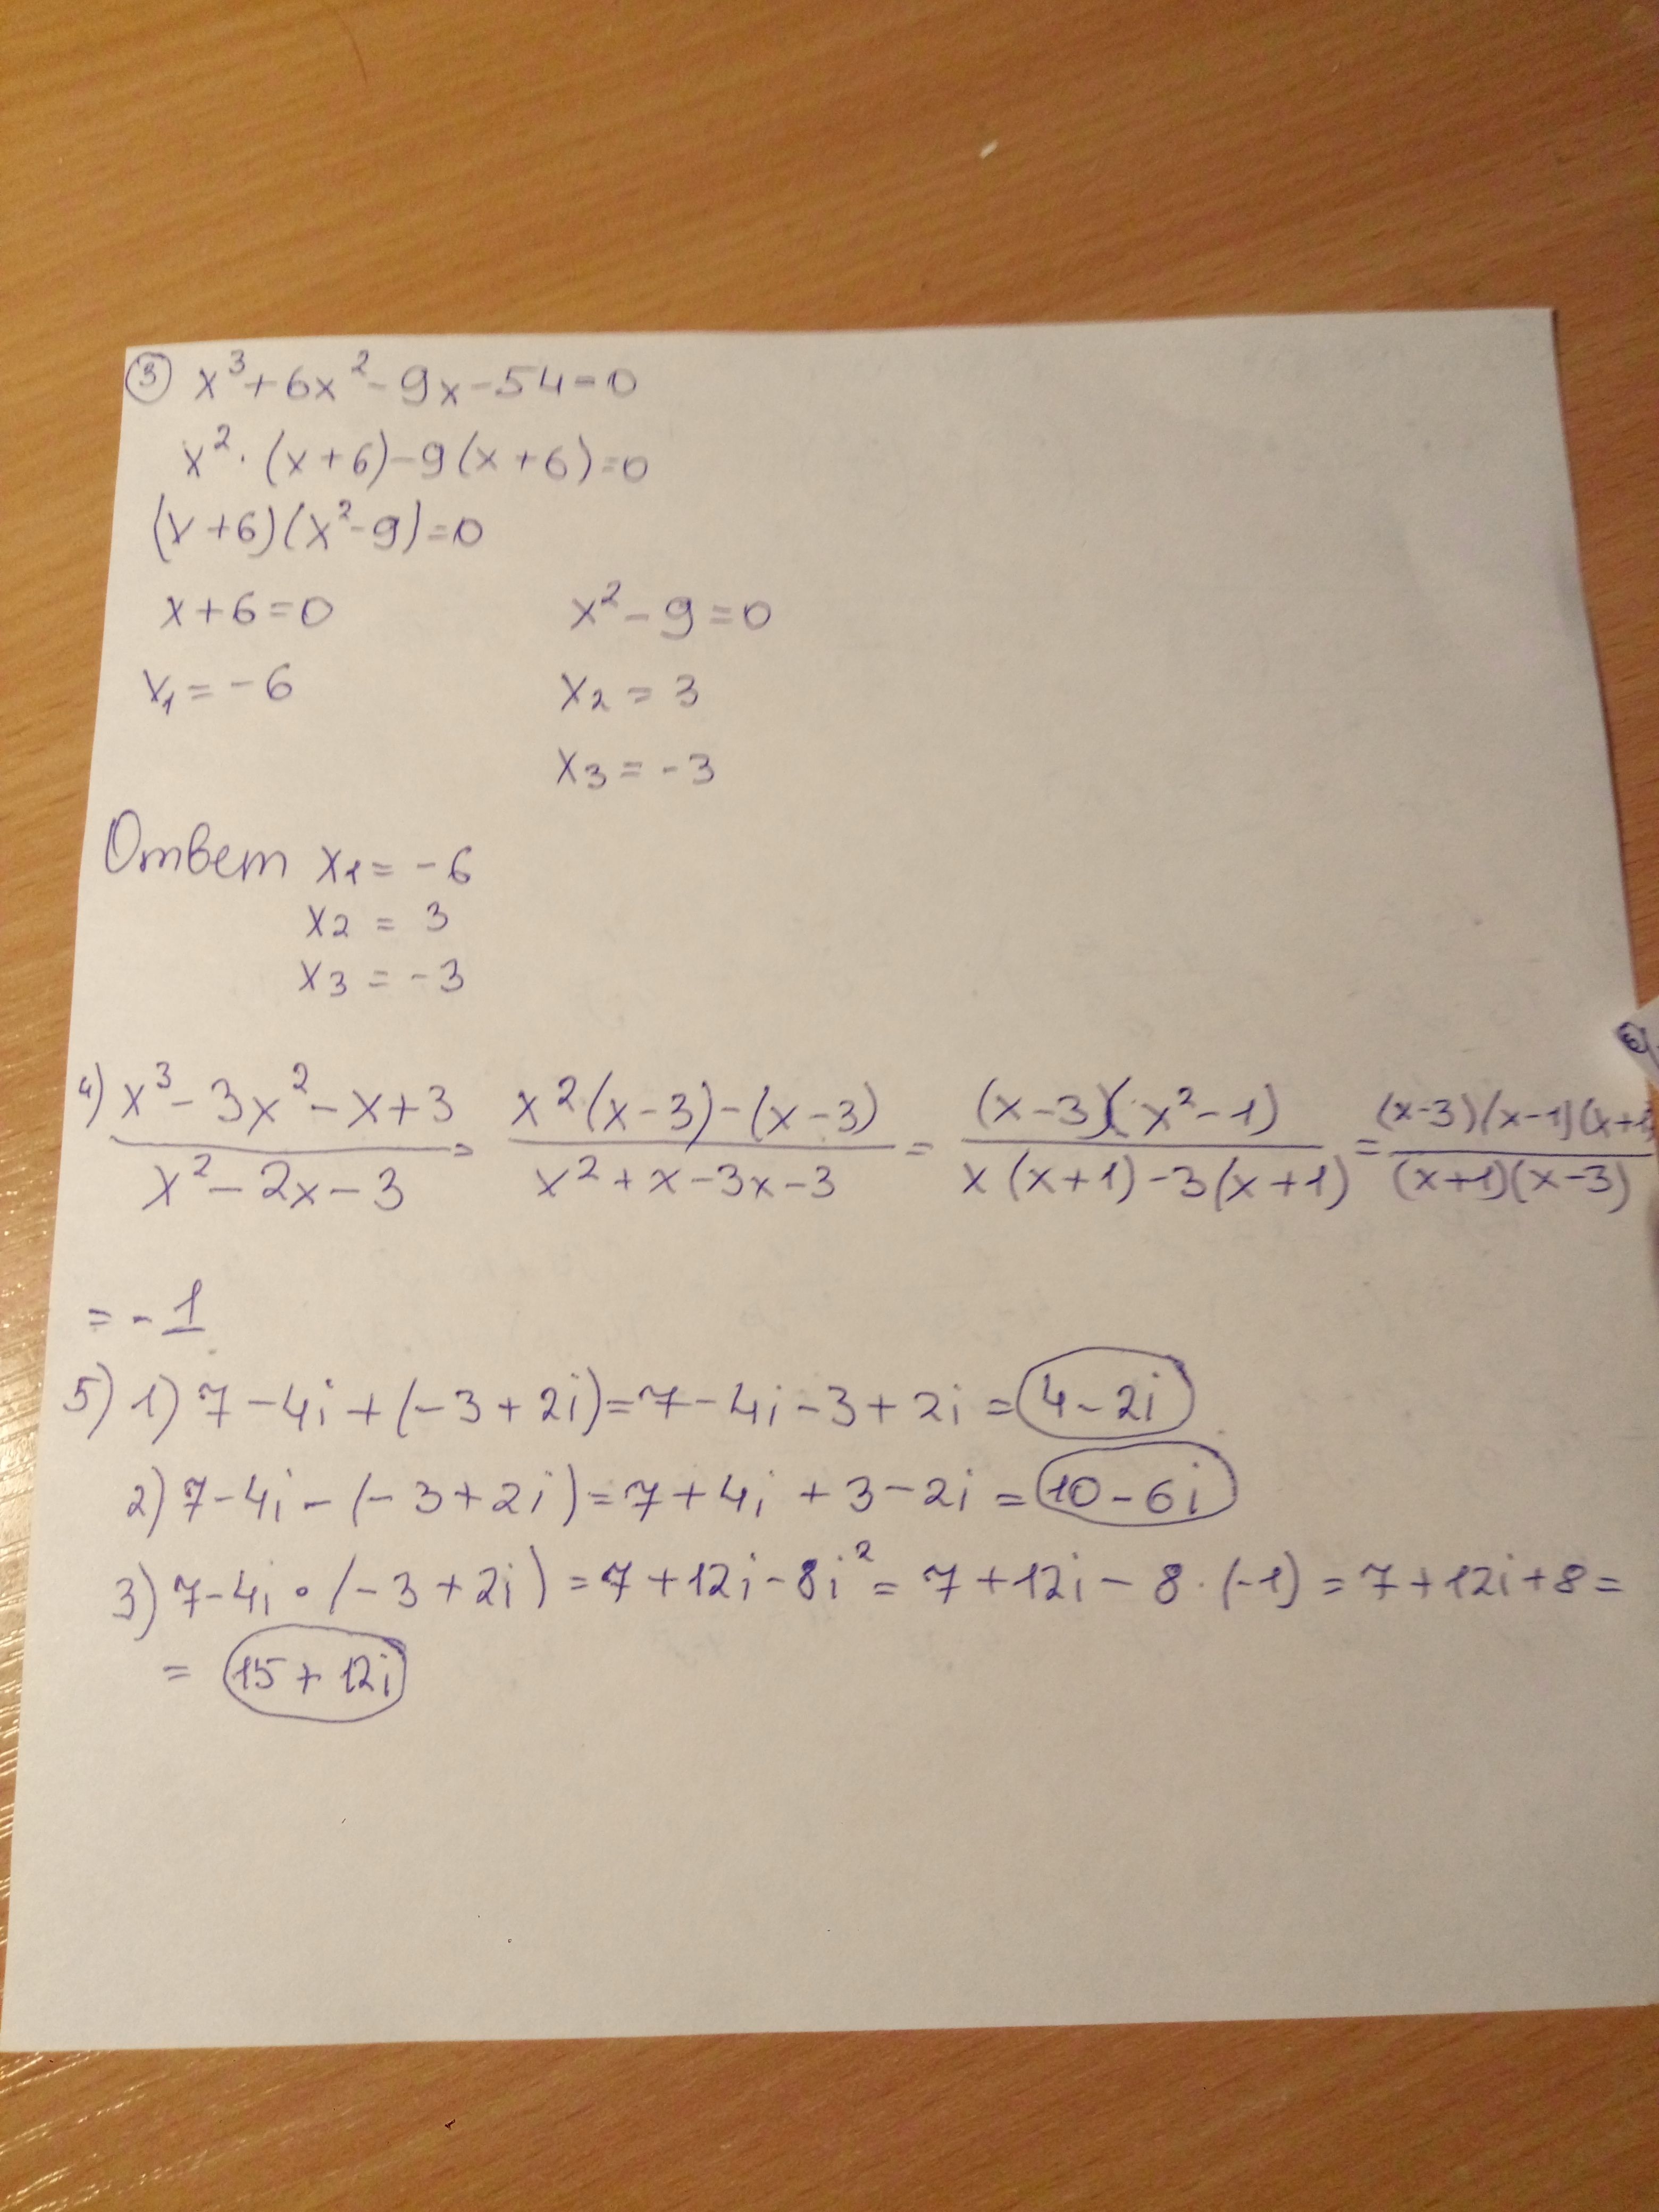 ③ x³+6x²-9x-54=0
x²·(x+6)-9(x+6)=0
(x+6)(x²-9)=0
x+6=0 x²-9=0
x₁=-6 x₂=3
x₃=-3
Ответ x₁=-6
x₂=3
x₃=-3
4) (x³-3x²-x+3)/(x²-2x-3) = (x²(x-3)-(x-3))/(x²+x-3x-3) = ((x-3)(x²-1))/(x(x+1)-3(x+1)) = ((x-3)(x-1)(x+1)/((x+1)(x-3))
=-1
5) 1) 7-4i+(-3+2i)=7-4i-3+2i=4-2i
2) 7-4i-(-3+2i)=7+4i+3-2i=10-6i
3) 7-4i·(-3+2i)=7+12i-8i²=7+12i-8·(-1)=7+12i+8=
=15+12i